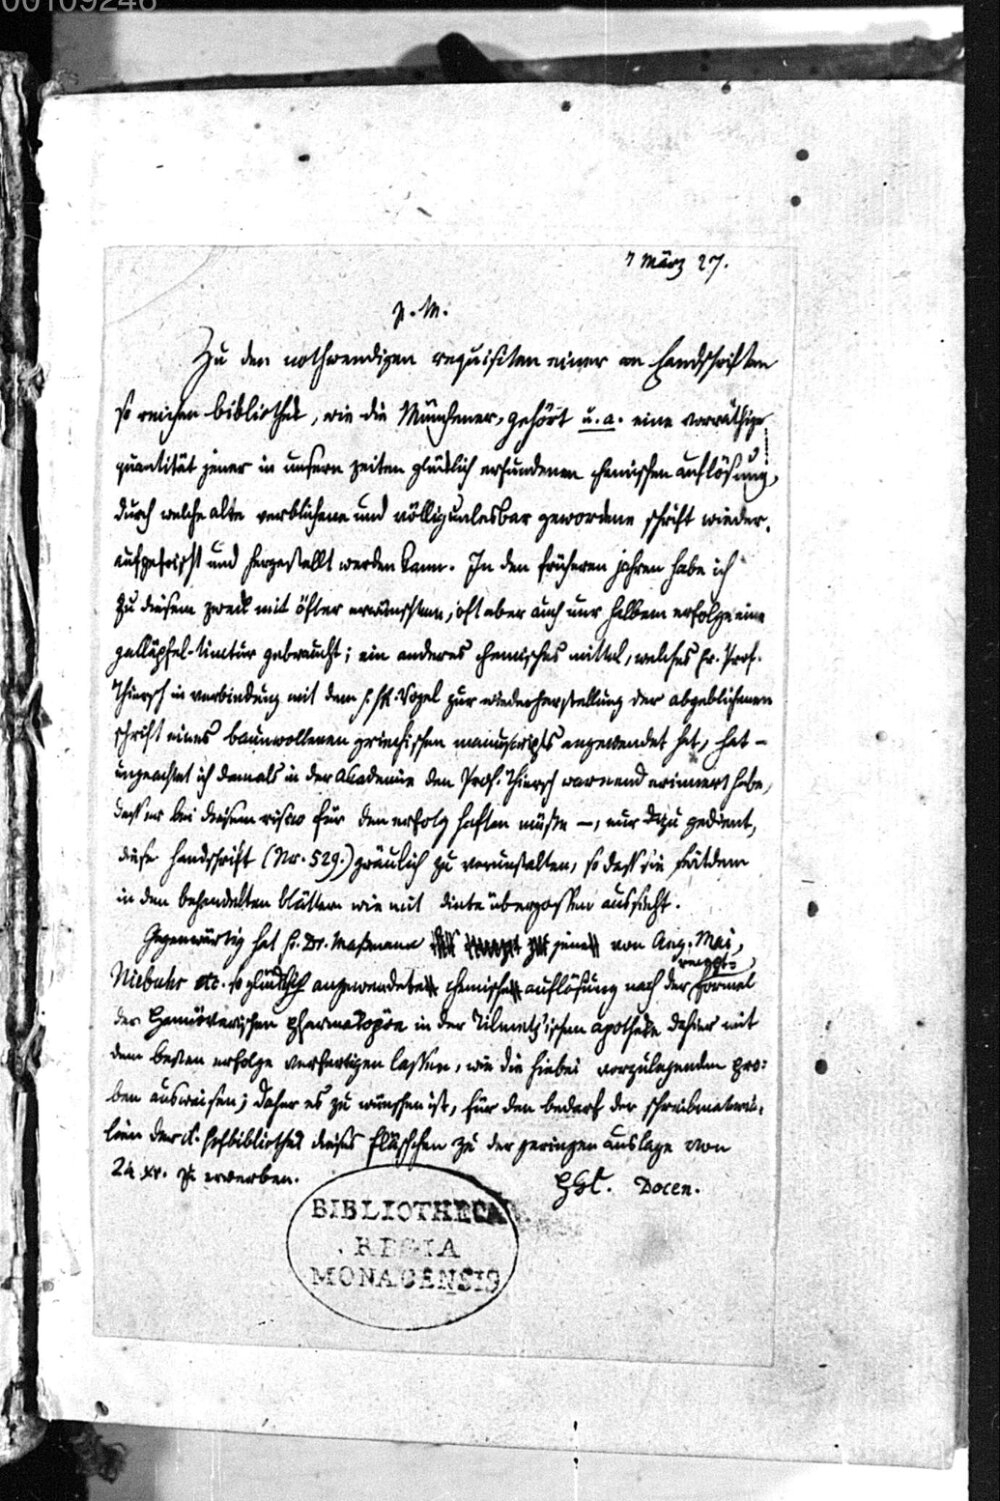 00109246
7 März 27.
p. M.
Zu den nothwendigen requisiten einer an handschriften
so reichen bibliothek, wie die Münchener, gehört u. a. eine vorräthige
quantität jener in unsern zeiten glücklich erfundenen chemischen auflösung,
durch welche alte verblichene und völlig unlesbar gewordene schrift wieder
aufgefrischt und hergestellt werden kann. In den früheren jahren habe ich
zu diesem zweck mit öfter erwünschtem, oft aber auch nur halbem erfolge eine
galläpfel-tinctur gebraucht; ein anderes chemisches mittel, welches hr. Prof.
Thiersch in verbindung mit dem Vogel zur wiederherstellung der abgeblichenen
schrift eines baumwollenen griechischen manuscripts angewendet hat, hat –
ungeachtet ich damals in der Akademie den Prof. Thiersch warnend erinnert habe,
dass er bei diesem risico für den erfolg haften müsse –, nur dazu gedient,
diese handschrift (Nr. 529.) gräulich zu verunstalten, so dass sie seitdem
in den behandelten blättern wie mit dinte übergossen aussieht.
Gegenwärtig hat h. Dr. Maßmann jene von Ang. Mai,
Niebuhr etc. so glücklich angewendete chemische auflösung nach der recept-formel
der Hannöverischen pharmakopöe in der Tilmetz'ischen apotheke dahier mit
dem besten erfolge verfertigen lassen, wie die hiebei vorzulegenden pro:
ben ausweisen; daher es zu wünschen ist, für den bedarf der schreibmateria:
lien der k. hofbibliothek dieses fläschchen zu der geringen auslage von
24 xr. zu erwerben.
Docen.
BIBLIOTHECA
REGIA
MONACENSIS